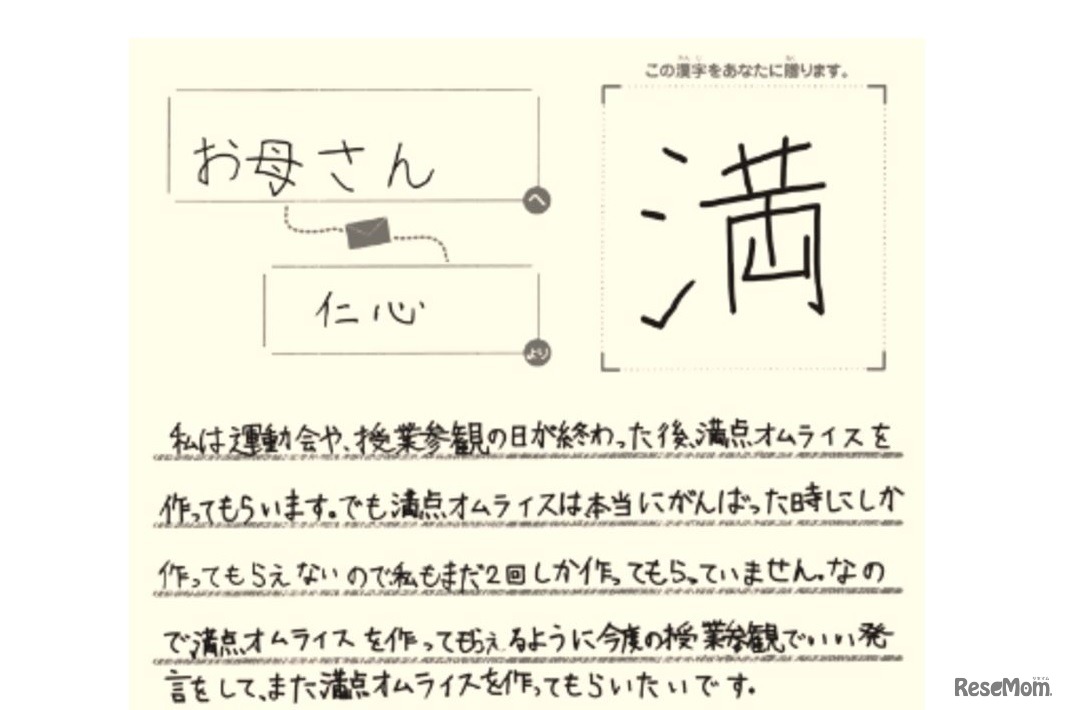 この漢字をあなたに贈ります。
満
お母さん
へ
仁心
より
私は運動会や、授業参観の日が終わった後、満点オムライスを
作ってもらいます。でも満点オムライスは本当にがんばった時にしか
作ってもらえないので私もまだ2回しか作ってもらっていません。なの
で満点オムライスを作ってもらえるように今度の授業参観でいい発
言をして、また満点オムライスを作ってもらいたいです。
ReseMom.